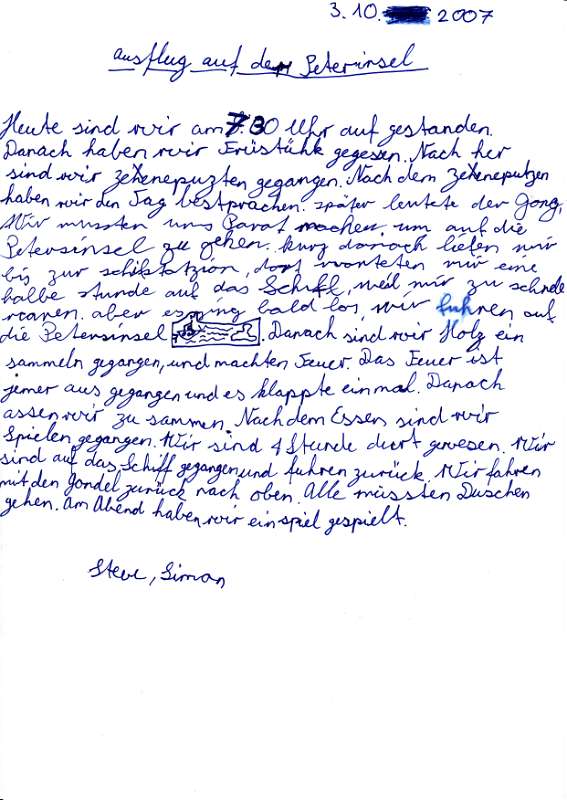 3. 10. 2007
Ausflug auf der Petersinsel
Heute sind wir am 7:30 Uhr auf gestanden.
Danach haben wir Früstükk gegessen. Nach her
sind wir zehenepuzten gegangen. Nach dem zehenepuzen
haben wir den Tag bestprachen. später leutete der Gong,
Wir mussten uns Parat machen, um auf die
Petersinsel zu gehen. kurz danach liefen wir
bis zur schifstatzion, dort wonteten wir eine
halbe stunde auf das Schiff, weil wir zu schnele
waren. aber es ging bald los, wir fuhren auf
die Petersinsel . Danach sind wir Holz ein
sammeln gegangen, und machten Feuer. Das Feuer ist
jemer aus gegangen und es klappte einmal. Danach
assen wir zu sammen. Nach dem Essen sind wir
Spielen gegangen. Wir sind 4 Stunde durt gewesen. Wir
sind auf das Schiff gegangen und fuhren zurück. Wir fahren
mit den Gondel zurück nach oben. Alle müssten Duschen
gehen. Am Abend haben wir ein spiel gespielt.
Steve, Simon